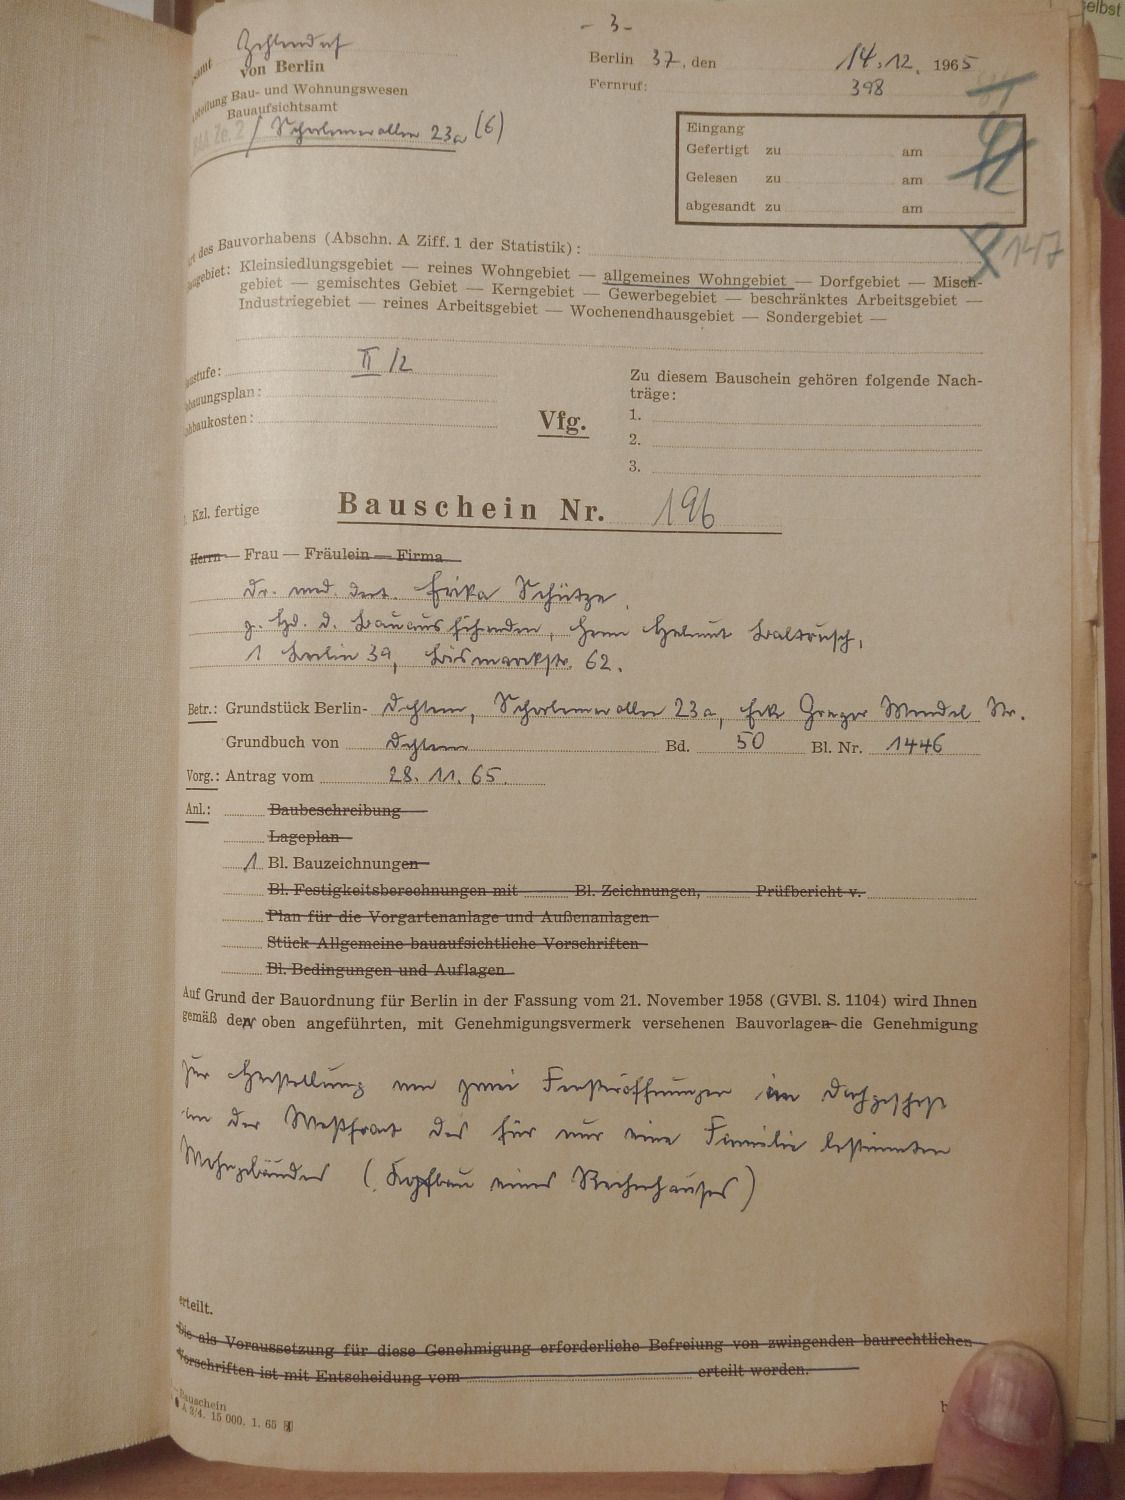 - 3 -
Zehlendorf
amt von Berlin
Berlin 37, den 14.12. 1965
Abteilung Bau- und Wohnungswesen
Fernruf: 398
Bauaufsichtsamt
/ Schorlemerallee 23a (6)
Eingang
Gefertigt zu am
Gelesen zu am
abgesandt zu am
147
des Bauvorhabens (Abschn. A Ziff. 1 der Statistik):
Kleinsiedlungsgebiet — reines Wohngebiet — allgemeines Wohngebiet — Dorfgebiet — Misch-
gebiet — gemischtes Gebiet — Kerngebiet — Gewerbegebiet — beschränktes Arbeitsgebiet —
Industriegebiet — reines Arbeitsgebiet — Wochenendhausgebiet — Sondergebiet —
ustufe: II/2
Zu diesem Bauschein gehören folgende Nach-
träge:
bauungsplan:
ohbaukosten:
Vfg.
1.
2.
3.
Kzl. fertige
Bauschein Nr. 196
Herrn — Frau — Fräulein — Firma
Dr. med. dent. Erika Schütze,
z. Hd. d. Bauausführenden, Herrn Helmut Baltrusch,
1 Berlin 39, Bismarckstr. 62.
Betr.: Grundstück Berlin- Dahlem, Schorlemerallee 23a, Ecke Gregor Mendel Str.
Grundbuch von Dahlem Bd. 50 Bl. Nr. 1446
Vorg.: Antrag vom 28.11.65.
Anl.: Baubeschreibung
Lageplan
1 Bl. Bauzeichnungen
Bl. Festigkeitsberechnungen mit Bl. Zeichnungen, Prüfbericht v.
Plan für die Vorgartenanlage und Außenanlagen
Stück Allgemeine bauaufsichtliche Vorschriften
Bl. Bedingungen und Auflagen
Auf Grund der Bauordnung für Berlin in der Fassung vom 21. November 1958 (GVBl. S. 1104) wird Ihnen
gemäß der oben angeführten, mit Genehmigungsvermerk versehenen Bauvorlagen die Genehmigung
zur Herstellung von zwei Fensteröffnungen im Dachgeschoß
an der Westfront des für nur eine Familie bestimmten
Wohngebäudes (Kopfbau eines Reihenhauses)
erteilt.
Die als Voraussetzung für diese Genehmigung erforderliche Befreiung von zwingenden baurechtlichen
Vorschriften ist mit Entscheidung vom erteilt worden.
Bauschein
A 3/4. 15 000. 1. 65